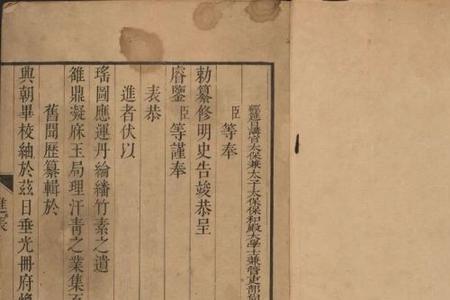 經筵日講官太保兼太子太保保和殿大學士兼管吏部
臣等奉
勅纂修明史告竣恭呈
睿鑒臣等謹奉
表恭
進者伏以
瑤圖應運丹綸繙竹素之遺
雒鼎凝庥玉局理汗青之業集
舊聞歷纂輯於
興朝畢校紬於茲日垂光冊府
進表